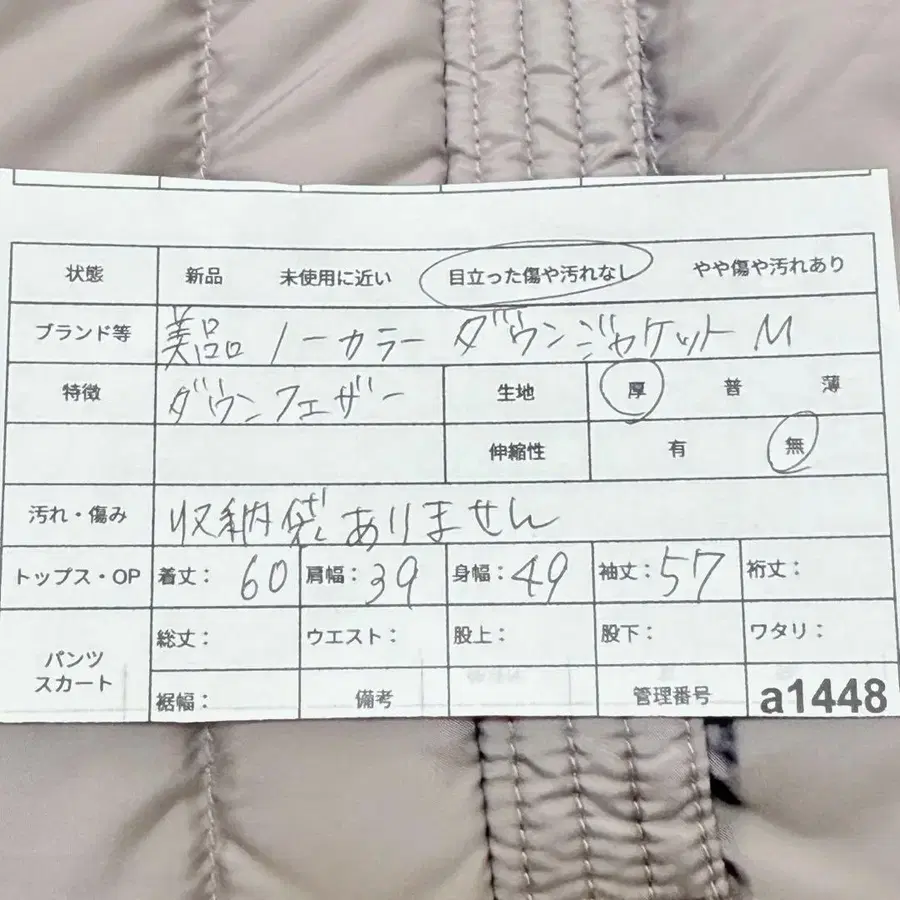 状態 新品 未使用に近い 目立った傷や汚れなし やや傷や汚れあり
ブランド等 美品 ノーカラー ダウンジャケット M
特徴 ダウンフェザー 生地 厚 普 薄
伸縮性 有 無
汚れ・傷み 収納袋ありません
トップス・OP 着丈: 60 肩幅: 39 身幅: 49 袖丈: 57 裄丈:
パンツ スカート 総丈: ウエスト: 股上: 股下: ワタリ:
裾幅: 備考 管理番号 a1448